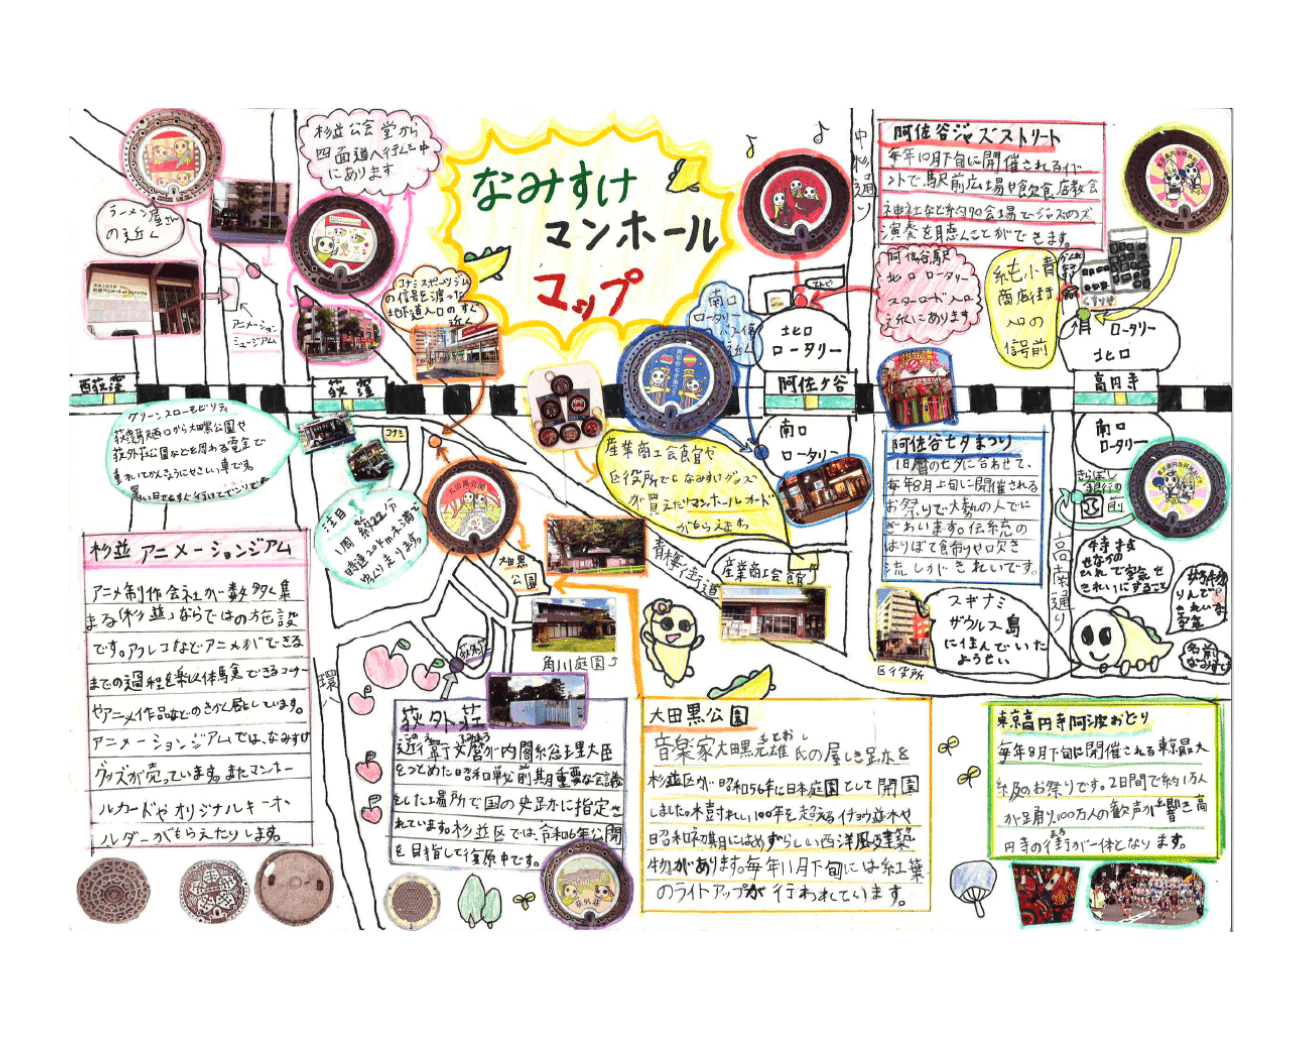 なみすけ
マンホール
マップ
杉並公会堂から
四面道へ行く途中
にあります
ラーメン屋さん
の近く
アニメーション
ミュージアム
コナミスポーツジム
の信号を渡った
地下道入口のすぐ
近く
南口
ロータリー
バス停
近く
中杉通り
阿佐谷ジャズストリート
毎年10月下旬に開催されるイベ
ントで駅前広場や飲食店教会
神社など約40会場でジャズのズ
演奏を聴くことができます。
阿佐谷駅
北口 ロータリー
スターロード入口
近くにあります
純小貴
商店街
入口の
信号前
くすりや
北口
ロータリー
ロータリー
北口
西荻窪
荻窪
阿佐ヶ谷
高円寺
グリーンスローモビリティ
荻窪駅西口から大田黒公園や
荻外荘公園などを周れる電気で
動いてかんきょうにやさしい車です。
暑い日でもすぐ行けてべんりです
コナミ
注目!
1周 約22分
時速20km未満で
ゆっくり走ります。
大田黒公園
産業商工会館や
区役所でなみすけグッズ
が買えたりマンホールカードが
もらえます
南口
ロータリー
阿佐谷七夕まつり
旧暦の七夕に合わせて、
毎年8月上旬に開催される
お祭りで大勢の人でに
ぎわいます。伝統の
はりぼて飾りや吹き
流しがきれいです。
南口
ロータリー
きらぼし
銀行の
前
高南通り
特技
せなかの
ひれで空気を
きれいにすること
好物
りんご。
きれいな
空気
名前
なみすけ
スギナミ
ザウルス島
に住んでいた
ようせい
区役所
青梅街道
産業商工会館
大田黒
公園
角川庭園
荻外荘
環八
杉並アニメーションジアム
アニメ制作会社が数多く集
まる「杉並」ならではの施設
です。アフレコなどアニメができる
までの過程を楽しく体験できるコーナー
やアニメ作品などのきかく展をしています。
アニメーションジアムでは、なみすけ
グッズが売っています。またマンホー
ルカードやオリジナルキーホ
ルダーがもらえたりします。
荻外荘
このえ ふみまろ
近衞文麿が内閣総理大臣
をつとめた昭和戦前期重要な会議
をした場所で国の史跡に指定さ
れています。杉並区では、令和6年公開
を目指して復原中です。
荻外荘
大田黒公園
もとおし
音楽家大田黒元雄氏の屋しき跡を
杉並区が昭和56年に日本庭園として開園
しました。木封れい100年を超えるイチョウ並木や
昭和初期にはめずらしい西洋風の建築
物があります。毎年11月下旬には紅葉
のライトアップが行われています。
東京高円寺阿波おどり
毎年8月下旬に開催される東京最大
級のお祭りです。2日間で約1万人
が足、約100万人の歓声が響き高
円寺の街が一体となります。